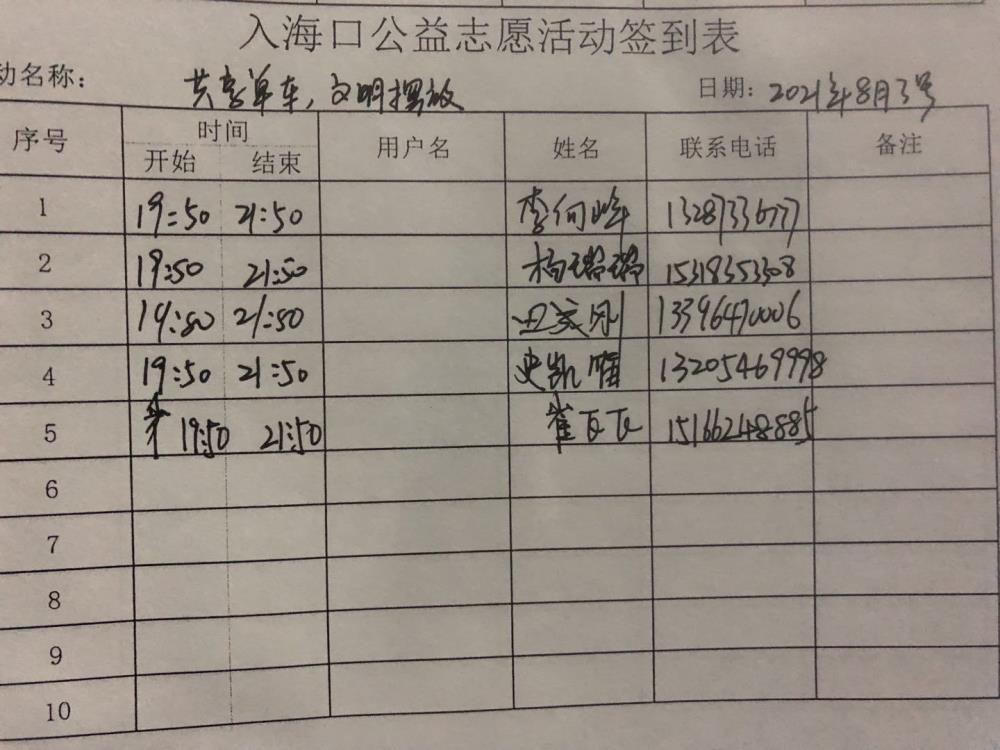 入海口公益志愿活动签到表
动名称： 共享单车，文明摆放 日期： 2021年8月3号
序号 时间 用户名 姓名 联系电话 备注
开始 结束
1 19:50 21:50 李向峰 13287336777
2 19:50 21:50 杨璐璐 15318353308
3 19:50 21:50 13396470006
4 19:50 21:50 史凯 13205469998
5 19:50 21:50 崔瓦瓦 15166248885
6
7
8
9
10